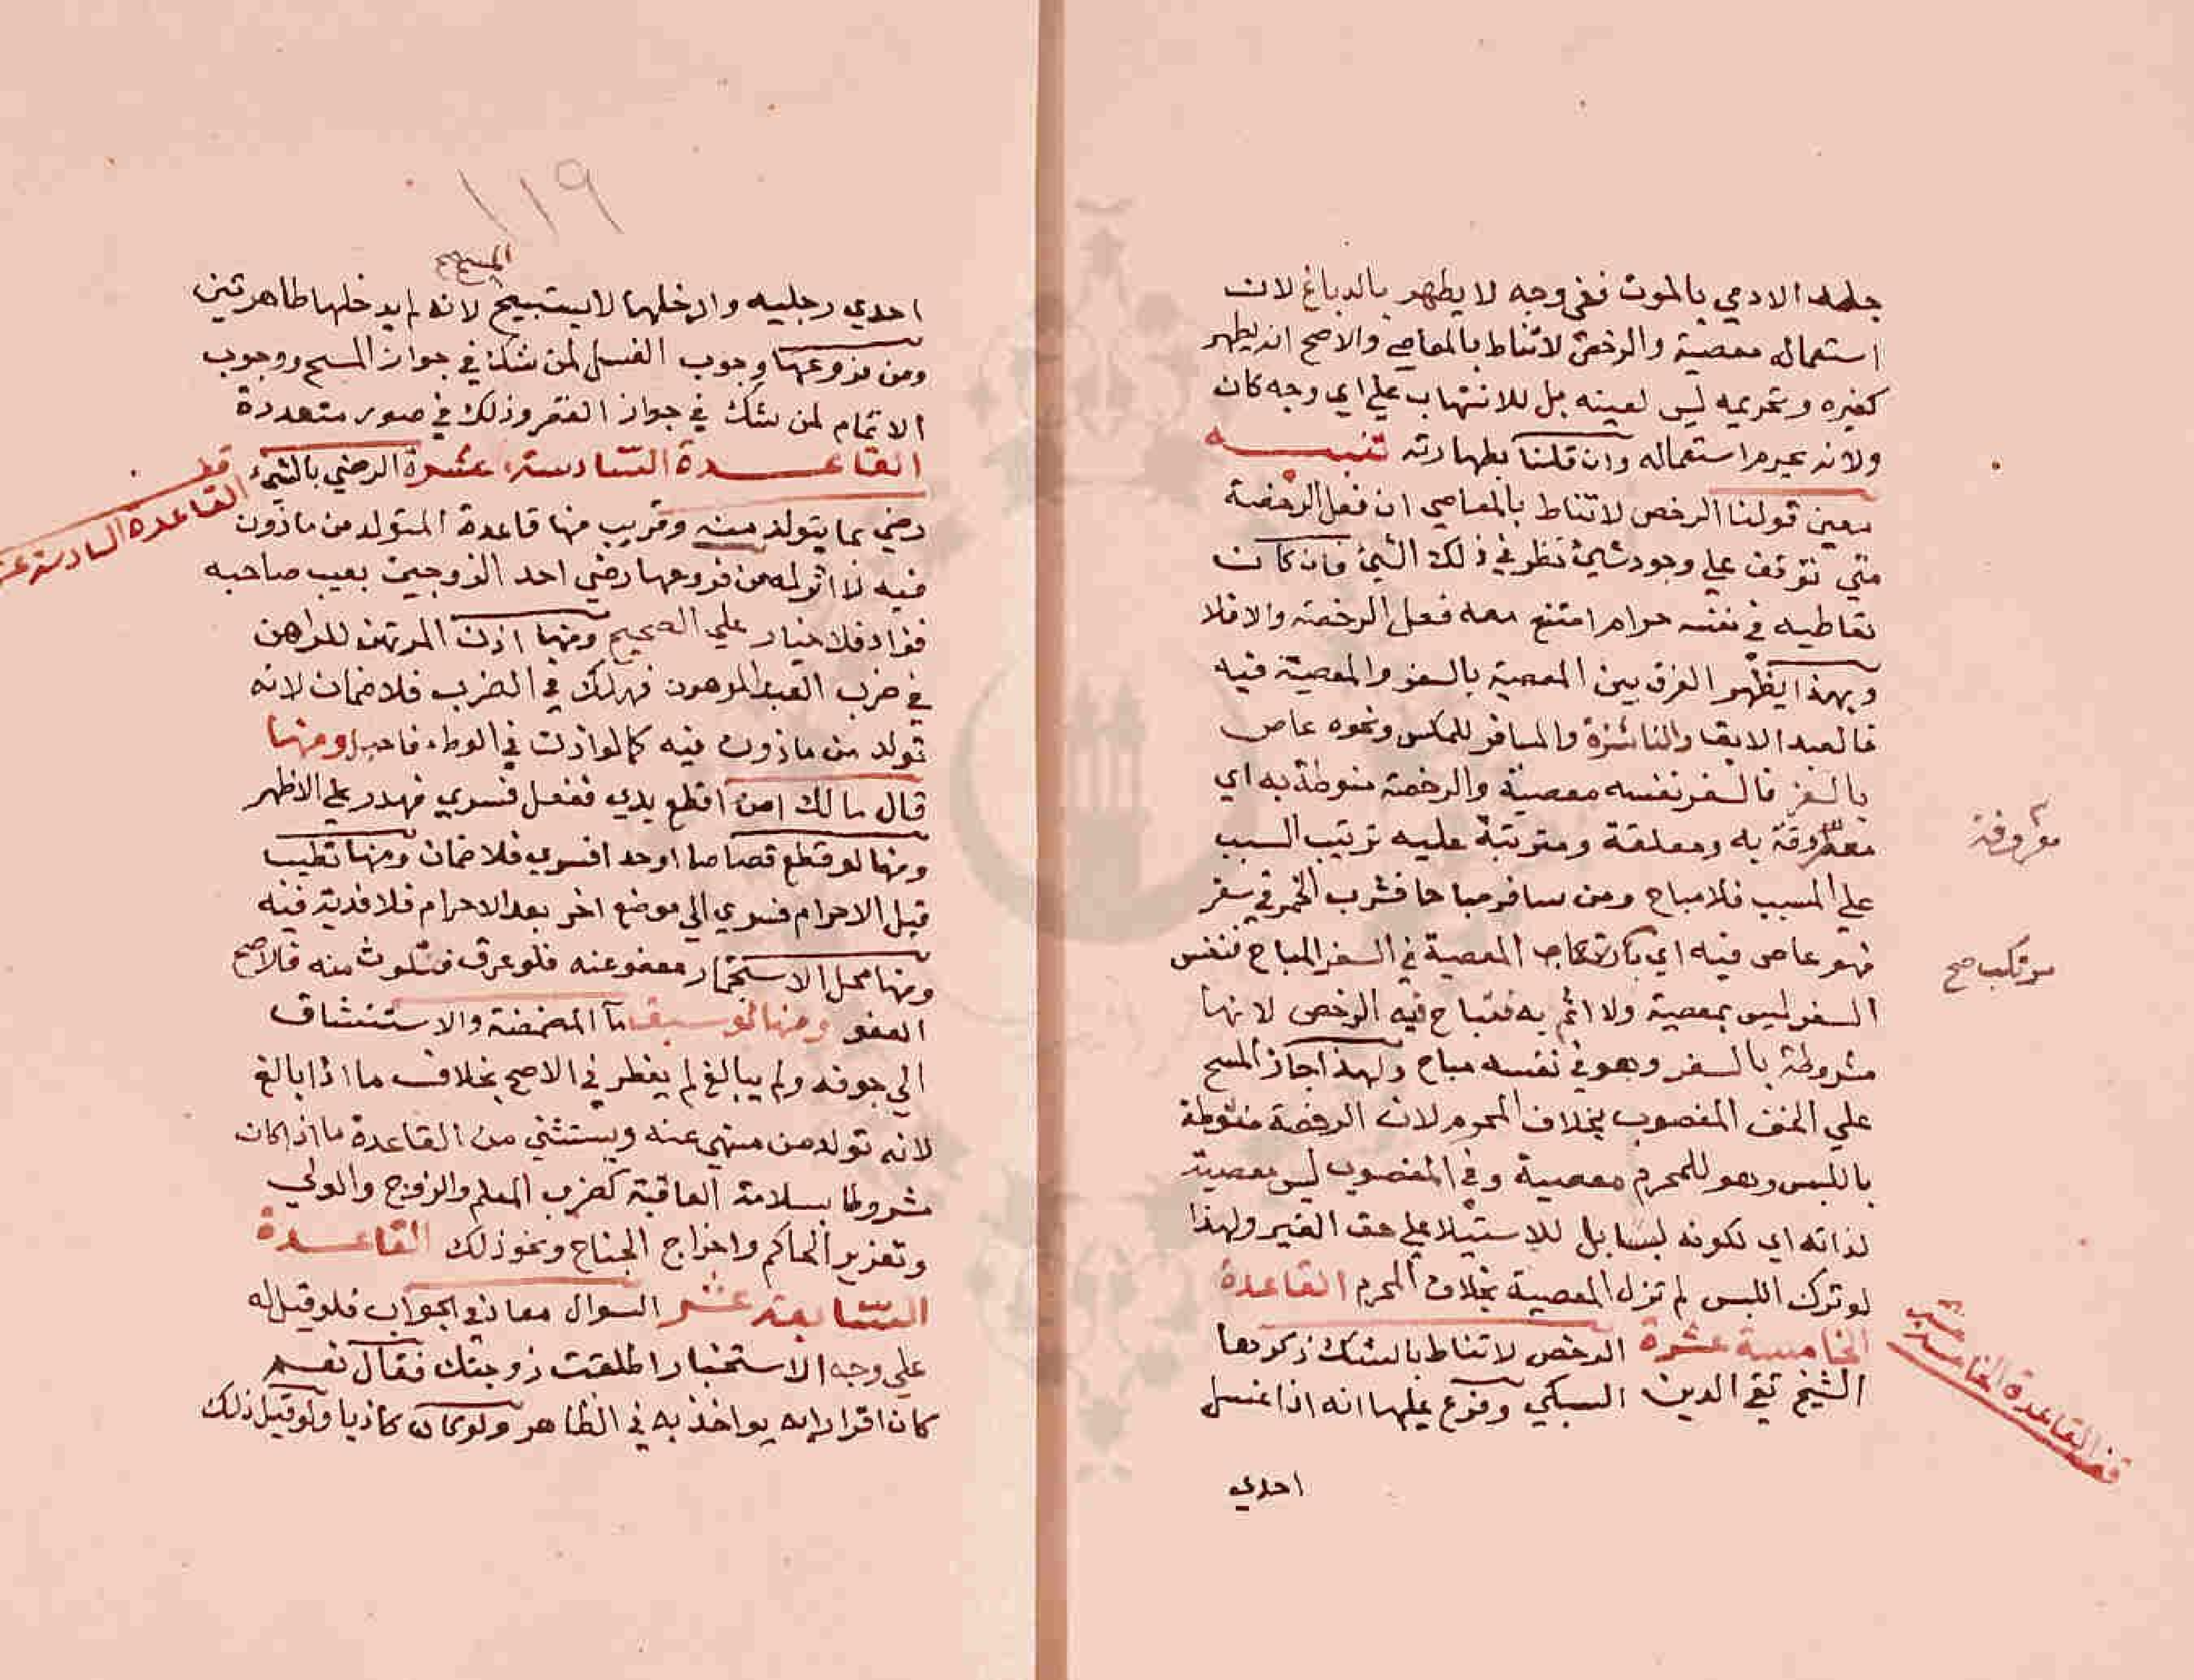 جلده الادمي بالموت ففي وجه لا يطهر بالدباغ لان
استعماله معصية والرخص لاتناط بالمعاصي والاصح انه يطهر
كغيره وتحريمه ليس لعينه بل للانتهاب علي اي وجه كان
ولانه يحرم استعماله وان قلنا بطهارته تنبيه
معني قولنا الرخص لاتناط بالمعاصي ان فعل الرخصة
متي توقف علي وجود شيئ نظر في ذلك الشيئ فان كان
تعاطيه في نفسه حرام امتنع معه فعل الرخصة والا فلا
وبهذا يظهر الفرق بين المعصية بالسفر والمعصية فيه
فالعبد الابق والناشزة والمسافر للمكس ونحوه عاص
بالسفر فالسفر نفسه معصية والرخصة منوطة به اي
معروقة به ومعلقة ومترتبة عليه ترتيب السبب
معروفة
علي المسبب فلا مباح ومن سافر مباحا فشرب الخمر في سفر
فهو عاص فيه اي بارتكاب المعصية في السفر المباح فنفس
مرتكب صح
السفر ليس بمعصية ولا اثم به فتباح فيه الرخص لانها
مشروطة بالسفر وهو في نفسه مباح ولهذا جاز المسح
علي الخف المغصوب بخلاف المحرم لان الرخصة منوطة
باللبس وهو للمحرم معصية وفي المغصوب ليس معصية
لذاته اي لكونه لبسا بل للاستيلا علي حق الغير ولهذا
لو ترك اللبس لم تزل المعصية بخلاف المحرم القاعدة
الخامسة عشرة الرخص لاتناط بالشك ذكرها
قف القاعدة الخامسة عشر
الشيخ تقي الدين السبكي وفرع عليها انه اذا غسل
احدي
١١٩
المسح صح
احدي رجليه وادخلها لا يستبيح لانه لم يدخلها طاهرتين
ومن فروعها وجوب الغسل لمن شك في جواز المسح ووجوب
الاتمام لمن شك في جواز القصر وذلك في صور متعددة
القاعدة السادسة عشرة الرضي بالشيء
قف القاعدة السادسة عشر
رضي بما يتولد منه وقريب منها قاعدة المتولد من ماذون
فيه لا اثر له من فروعها رضي احد الزوجين بعيب صاحبه
فزاد فلا خيار علي الصحيح ومنها اذن المرتهن للراهن
في ضرب العبد المرهون فهلك في الضرب فلا ضمان لانه
تولد من ماذون فيه كما لو اذن في الوطء فاحبل ومنها
قال مالك امن اقطع يدي ففعل فسري فهدر علي الاظهر
ومنها لو قطع قصاصا اوحد افسري فلا ضمان ومنها تطيب
قبل الاحرام فسري الي موضع اخر بعد الاحرام فلا فدية فيه
ومنها محل الاستجمار معفو عنه فلو عرق فتلوث منه فالاصح
العفو ومنها لو سبق ما المضمضة والاستنشاق
الي جوفه ولم يبالغ لم يفطر في الاصح بخلاف ما اذا بالغ
لانه تولد من منهي عنه ويستثني من القاعدة ما اذا كان
مشروطا بسلامة العاقبة كضرب المعلم والزوج والولي
وتعزير الحاكم واخراج الجناح ونحو ذلك القاعدة
السابعة عشر السوال معاد في الجواب فلو قيل له
علي وجه الاستخبار اطلقت زوجتك فقال نعم
كان اقرارا به يواخذ به في الظاهر ولو كان كاذبا ولو قيل ذلك